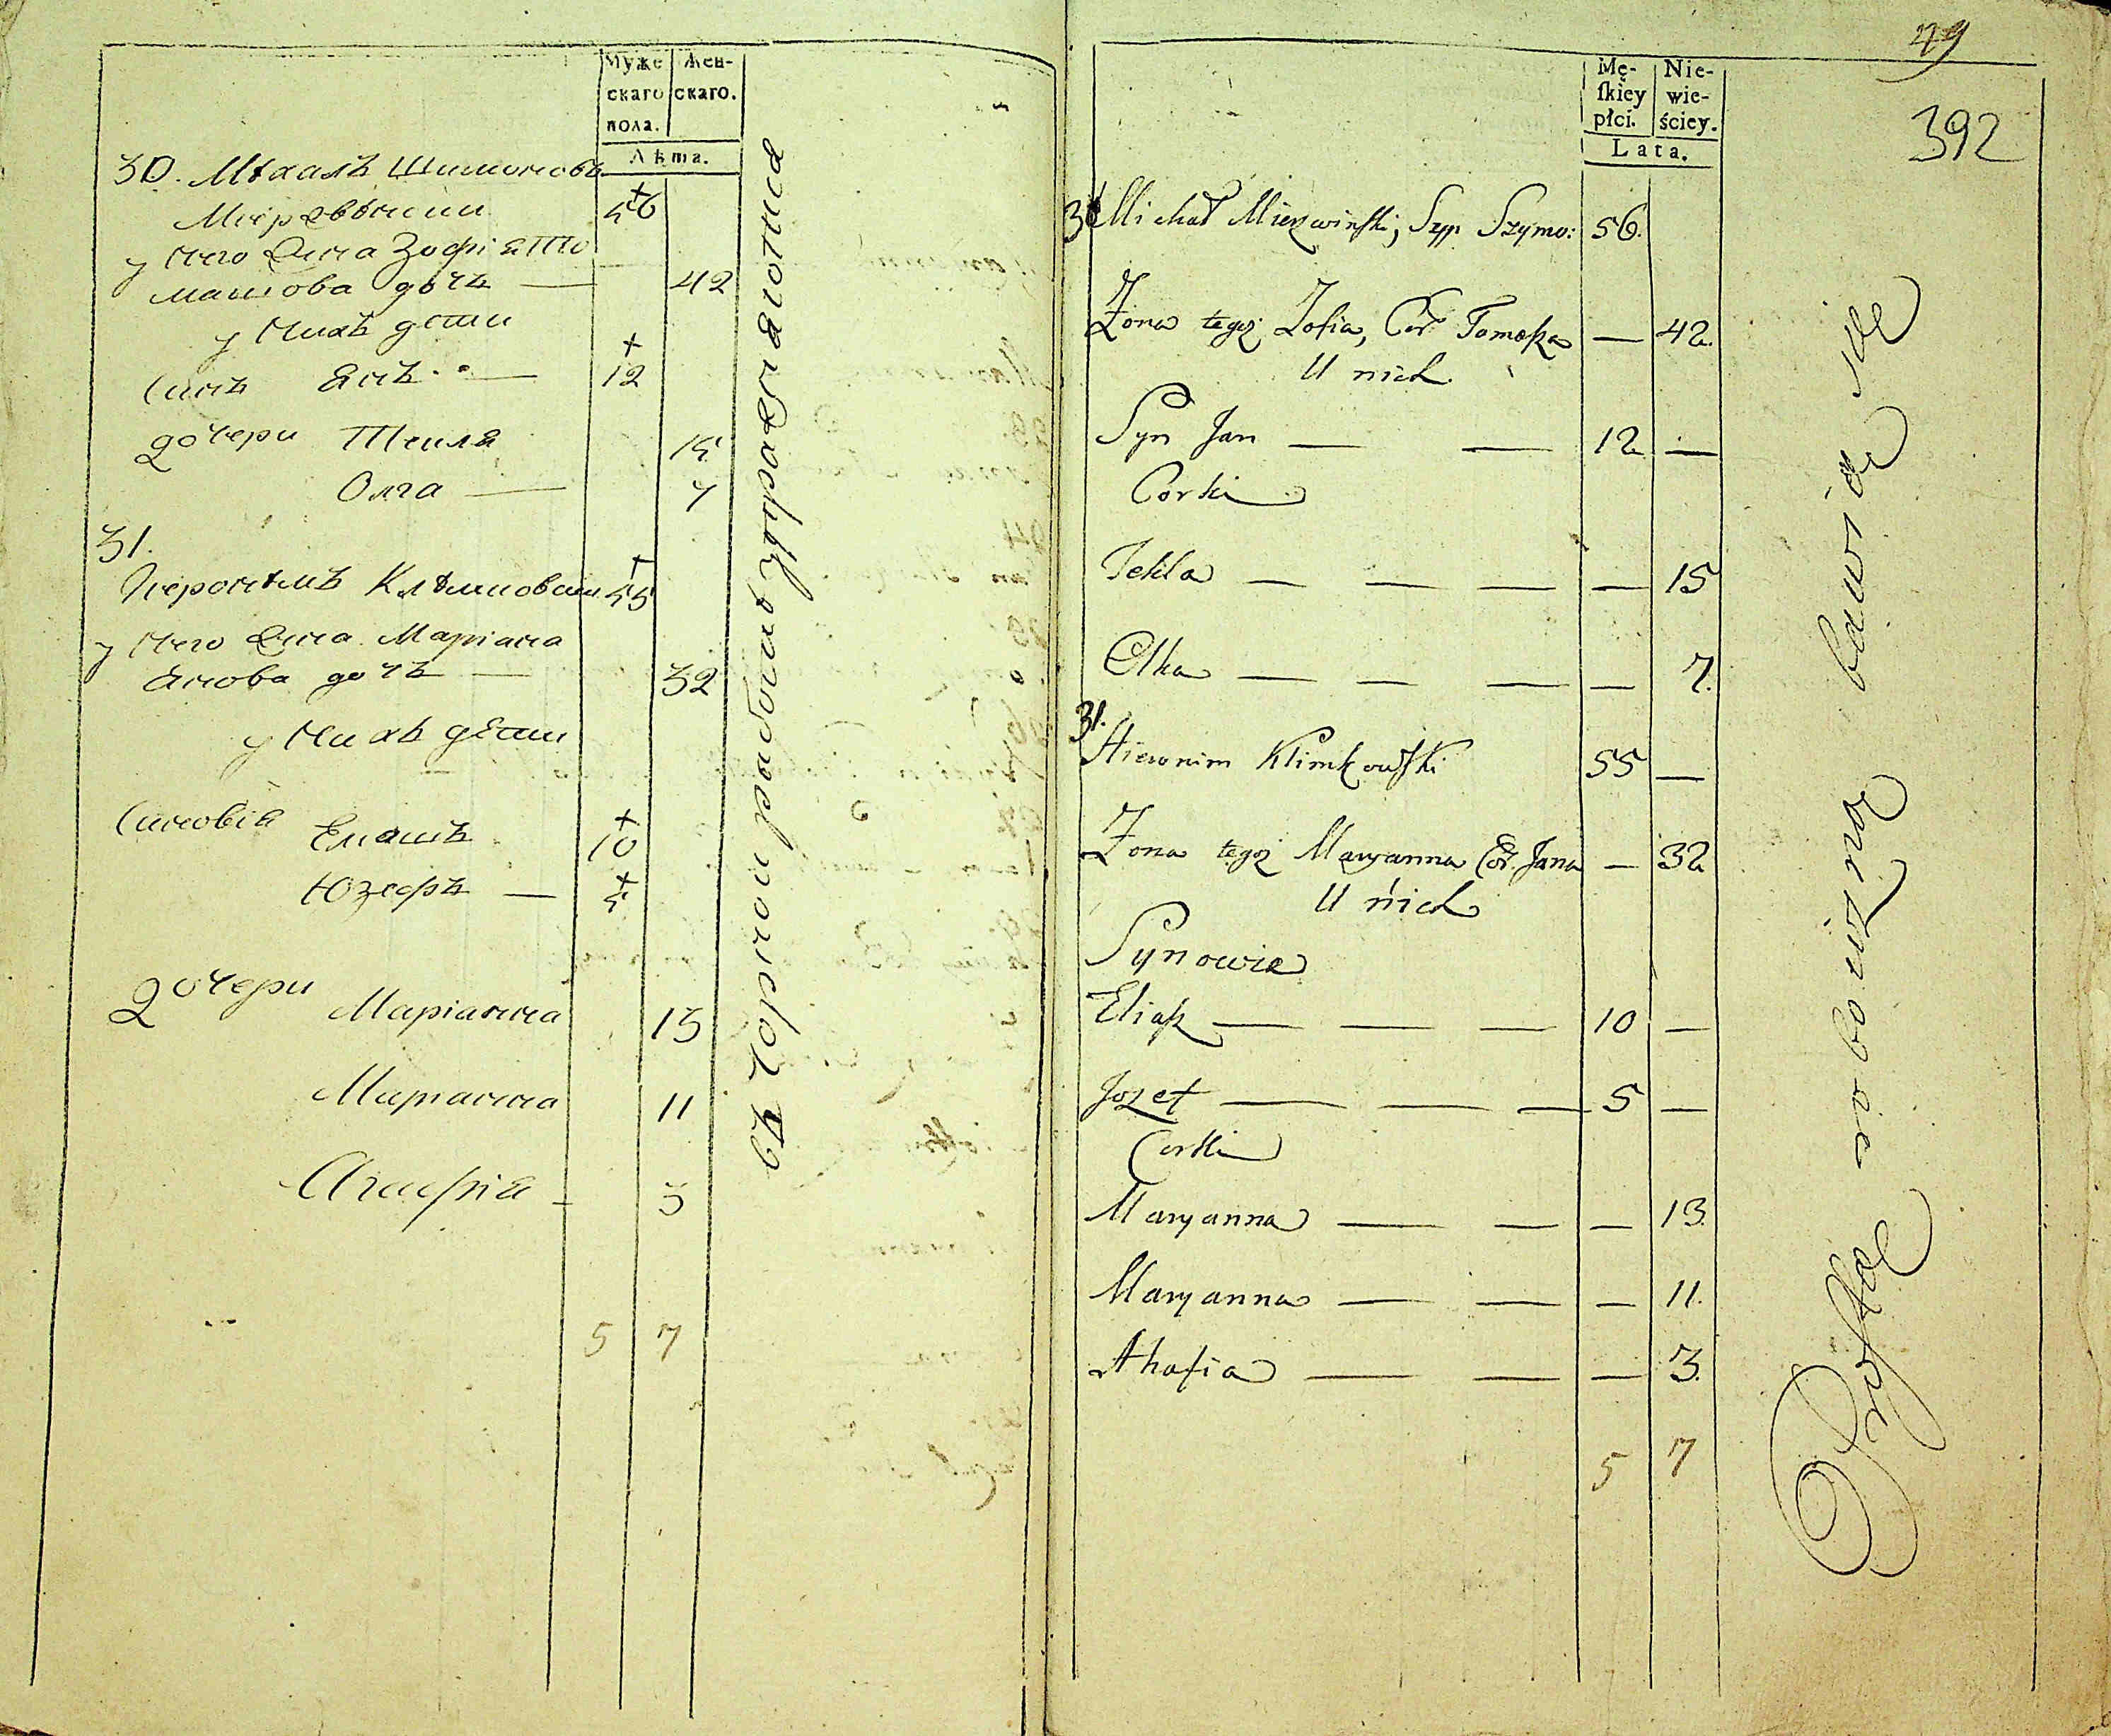 Муже Жен-
скаго скаго.
пола.
Лѣта.
30. Михалъ Шимоновъ
Мѣрзвински 56
у него жена Зофія То
машова дочь — 42
у нихъ дети
Синъ Янъ — 12
дочери Текля 15
Олга — 7
31.
Иеронимъ Климковски 55
у него жена Маріана
Янова дочь — 32
у нихъ дети
Синовія Елиашъ 10
Юзефъ — 5
Дочери Маріанна 13
Маріанна 11
Агафія — 3
5 7
въ чорной работи упражняютца
79
392
Mę- Nie-
ſkiey wie-
płci. ściey.
Lata.
30 Michał Mierzwinſki, Syn Szymo: 56.
Zona tegoż Zofia, Cor Tomaſza — 42.
U nich
Syn Jan — — 12 —
Corki
Tekla — — — — 15
Olka — — — — 7.
31.
Hieronim Klimkowſki 55 —
Zona tegoż Maryanna Cor. Jana — 32
U nich
Synowie
Eliaſz — — — 10 —
Jozef — — — 5 —
Corki
Maryanna — — — 13.
Maryanna — — — 11.
Ahafia — — — 3.
5 7
Proſtą robocizną bawią się